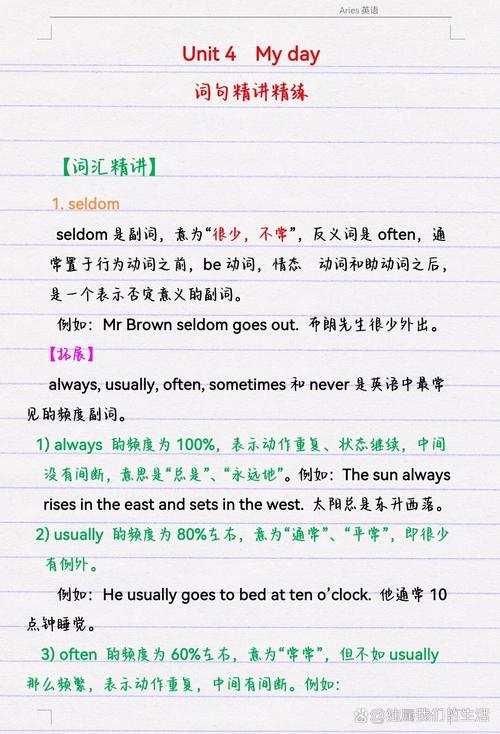 Aries 英语
Unit 4 My day
词句精讲精练
【词汇精讲】
1. seldom
seldom 是副词，意为“很少，不常”，反义词是 often，通
常置于行为动词之前，be 动词，情态 动词和助动词之后，
是一个表示否定意义的副词。
例如：Mr Brown seldom goes out. 布朗先生很少外出。
【拓展】
always, usually, often, sometimes 和 never 是英语中最常
见的频度副词。
1) always 的频度为 100%，表示动作重复、状态继续，中间
没有间断，意思是“总是”、“永远地”。例如：The sun always
rises in the east and sets in the west. 太阳总是东升西落。
2) usually 的频度为 80%左右，意为“通常”、“平常”，即很少
有例外。
例如：He usually goes to bed at ten o’clock. 他通常 10
点钟睡觉。
3) often 的频度为 60%左右，意为“常常”，但不如 usually
那么频繁，表示动作重复，中间有间断。例如：
@独属我们的生活